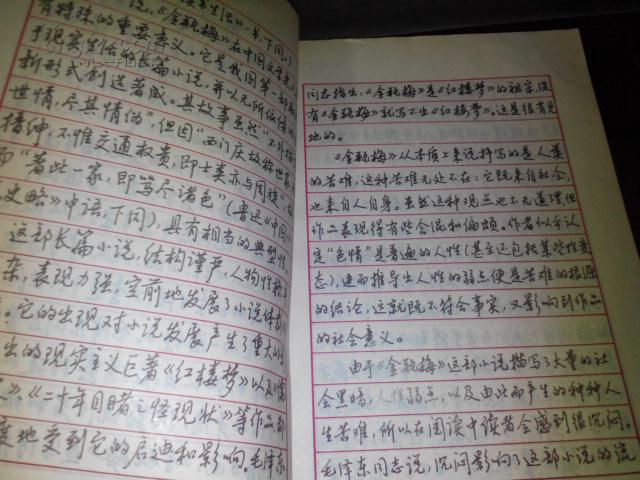 说,《金瓶梅》在中国文学史上
有特殊的重要意义。它是我国第一部
于现实生活的长篇小说,并以无所依傍的
新形式创造著成。其故事虽然"不外描
世情,尽其情伪",但因"西门庆故称世家,为
搢绅,不惟交通权贵,即士类亦与周旋",
而"著此一家,即骂尽诸色"(鲁迅《中国小
史略》中语,下同),具有相当的典型性。
这部长篇小说,结构谨严,人物性格
杂,表现力强,空前地发展了小说体裁
。它的出现对小说发展产生了重大的
出的现实主义巨著《红楼梦》以及《儒
》、《二十年目睹之怪现状》等作品都
度地受到它的启迪和影响。毛泽东
同志指出:《金瓶梅》是《红楼梦》的祖宗,没
有《金瓶梅》就写不出《红楼梦》,这是很有见
地的。
《金瓶梅》从本质上来说抒写的是人类
的苦难,这种苦难无处不在:它既来自社会,
也来自人自身。虽然这种观点也不无道理,但
作品表现得有些含混和偏颇。作者似乎认
定"色情"是普遍的人性(甚至还包括某些性变
态),进而推导出人性的弱点便是苦难的根源
的结论,这就既不符合事实,又影响到作品
的社会意义。
由于《金瓶梅》这部小说描写了大量的社
会黑暗,人性弱点,以及由此而产生的种种人
生苦难,所以在阅读中读者会感到很沉闷。
毛泽东同志说,沉闷影响了这部小说的流